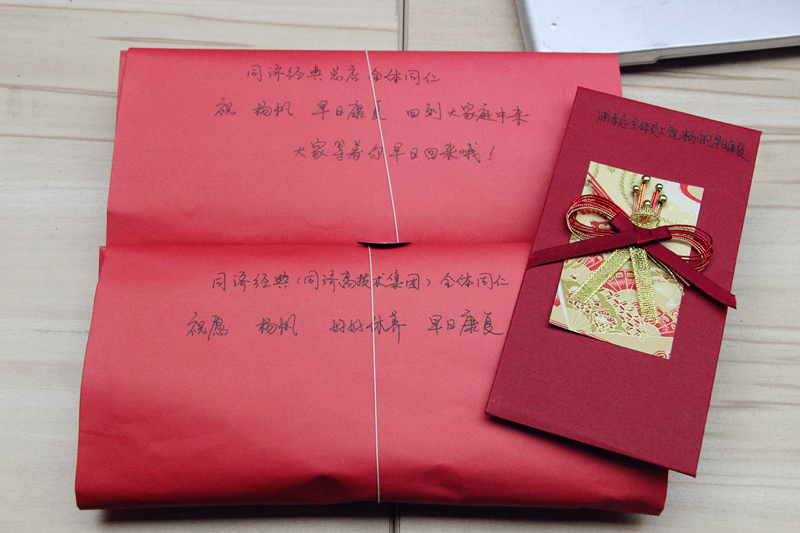 同济经典总店 全体同仁
祝 杨帆 早日康复 回到大家庭中来
大家等着你早日回来哦！
同济经典（同济高技术集团）全体同仁
祝愿 杨帆 好好休养 早日康复
浦东店全体员工祝杨帆早日康复